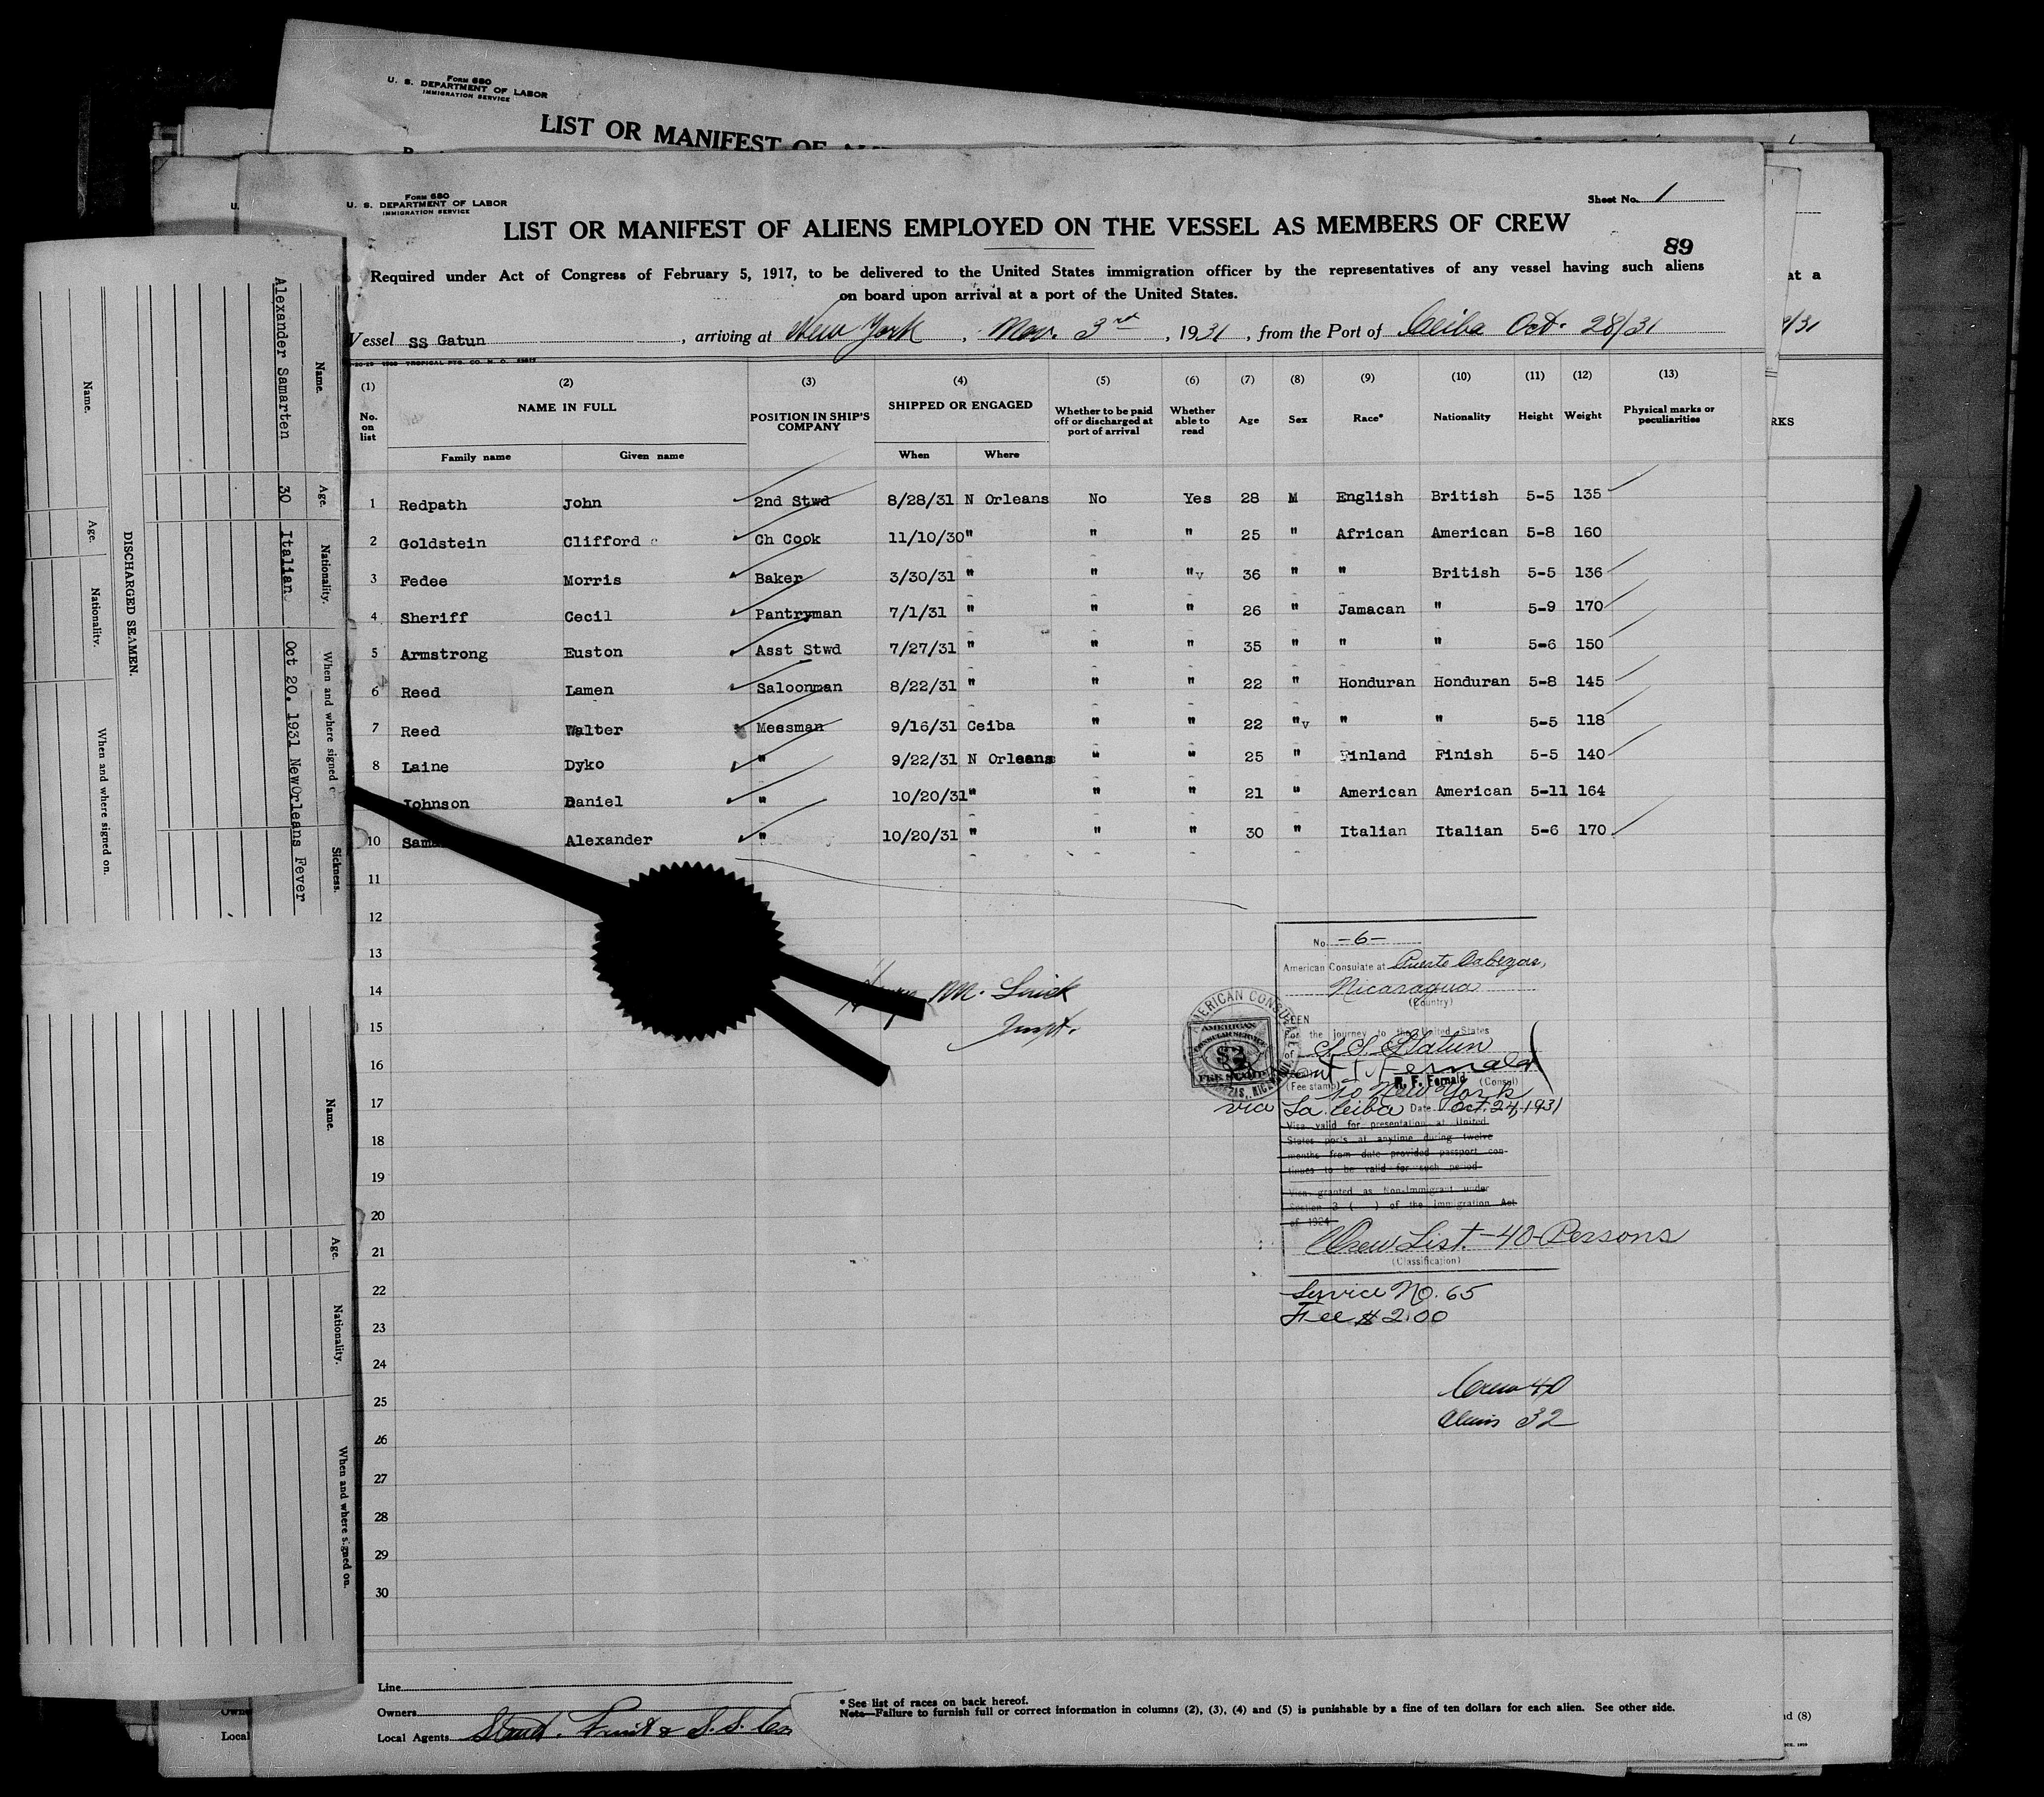 Form 680
U. S. DEPARTMENT OF LABOR
IMMIGRATION SERVICE
LIST OR MANIFEST OF
Form 680
U. S. DEPARTMENT OF LABOR
IMMIGRATION SERVICE
Sheet No. 1
LIST OR MANIFEST OF ALIENS EMPLOYED ON THE VESSEL AS MEMBERS OF CREW
89
Required under Act of Congress of February 5, 1917, to be delivered to the United States immigration officer by the representatives of any vessel having such aliens
on board upon arrival at a port of the United States.
Vessel SS Gatun, arriving at New York, Nov. 3rd, 1931, from the Port of Ceiba Oct. 28/31
(1) (2) (3) (4) (5) (6) (7) (8) (9) (10) (11) (12) (13)
No. on list NAME IN FULL POSITION IN SHIP'S COMPANY SHIPPED OR ENGAGED Whether to be paid off or discharged at port of arrival Whether able to read Age Sex Race* Nationality Height Weight Physical marks or peculiarities
Family name Given name When Where
1 Redpath John 2nd Stwd 8/28/31 N Orleans No Yes 28 M English British 5-5 135
2 Goldstein Clifford Ch Cook 11/10/30 " " " 25 " African American 5-8 160
3 Fedee Morris Baker 3/30/31 " " "v 36 " " British 5-5 136
4 Sheriff Cecil Pantryman 7/1/31 " " " 26 " Jamacan " 5-9 170
5 Armstrong Euston Asst Stwd 7/27/31 " " " 35 " " " 5-6 150
6 Reed Lamen Saloonman 8/22/31 " " " 22 " Honduran Honduran 5-8 145
7 Reed Walter Messman 9/16/31 Ceiba " " 22 "v " " 5-5 118
8 Laine Dyko " 9/22/31 N Orleans " " 25 " Finland Finish 5-5 140
Johnson Daniel " 10/20/31 " " " 21 " American American 5-11 164
10 Sam Alexander " 10/20/31 " " " 30 " Italian Italian 5-6 170
11
12
13
14
15
16
17
18
19
20
21
22
23
24
25
26
27
28
29
30
M.
No. -6-
American Consulate at Puerto Cabezas,
Nicaragua
(Country)
SEEN
For the journey to the United States
of S.S. Gatun
(Fee stamp) R. F. Fernald (Consul)
to New York
via La Ceiba Date Oct. 24, 1931
Visa valid for presentation at United
States ports at anytime during twelve
months from date provided passport con-
tinues to be valid for such period
Visa granted as Non-Immigrant under
Section 3 ( ) of the Immigration Act
of 1924
Crew List - 40 Persons
(Classification)
Service No. 65
Fee $2.00
AMERICAN CONSULAR SERVICE
$2
FEE STAMP
Crew 40
Aliens 32
Line
Owners
Local Agents Stand. Fruit & S.S. Co
* See list of races on back hereof.
Note—Failure to furnish full or correct information in columns (2), (3), (4) and (5) is punishable by a fine of ten dollars for each alien. See other side.
DISCHARGED SEAMEN.
Name. Age. Nationality. When and where signed Sickness.
Alexander Samarten 30 Italian Oct 20. 1931 NewOrleans Fever
Name. Age. Nationality. When and where signed on.
Name. Age. Nationality. When and where signed on.
at a
/31
RKS
Owne
Local
d (8)